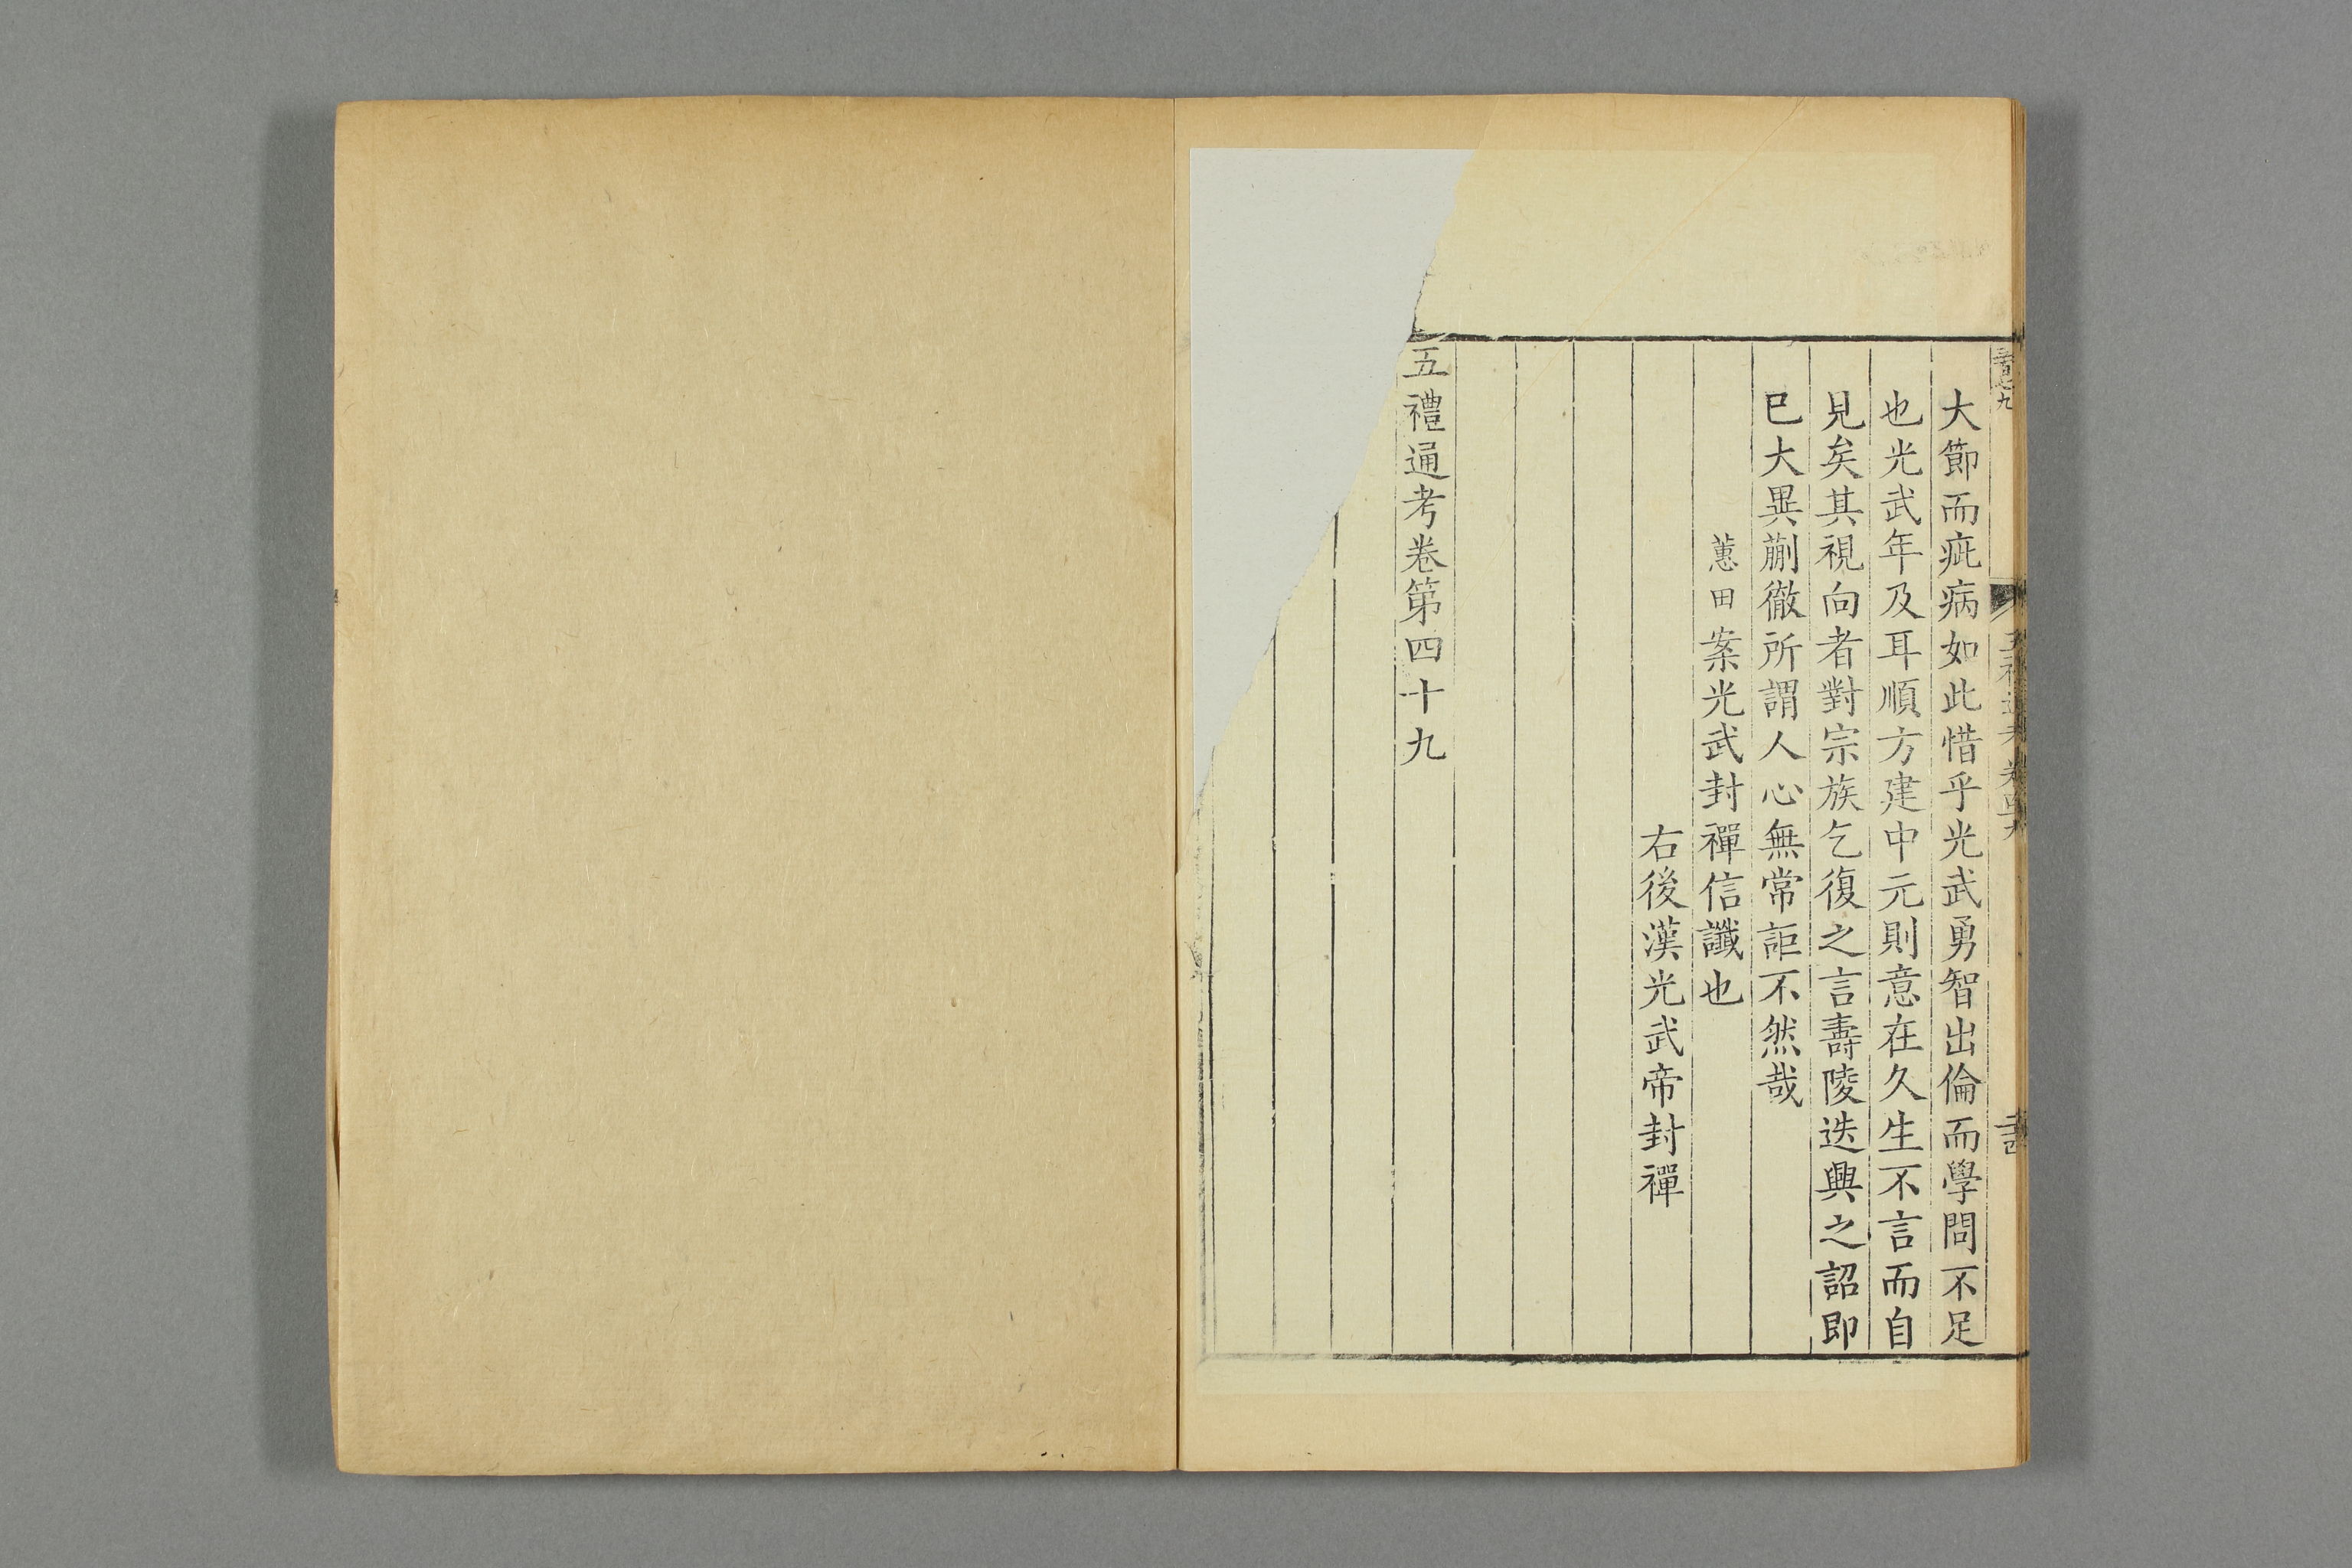 大節而疵病如此惜乎光武勇智出倫而學問不足
也光武年及耳順方建中元則意在久生不言而自
見矣其視向者對宗族乞復之言壽陵迭興之詔即
巳大異蒯徹所謂人心無常詎不然哉
蕙田案光武封禪信讖也
右後漢光武帝封禪
五禮通考卷第四十九